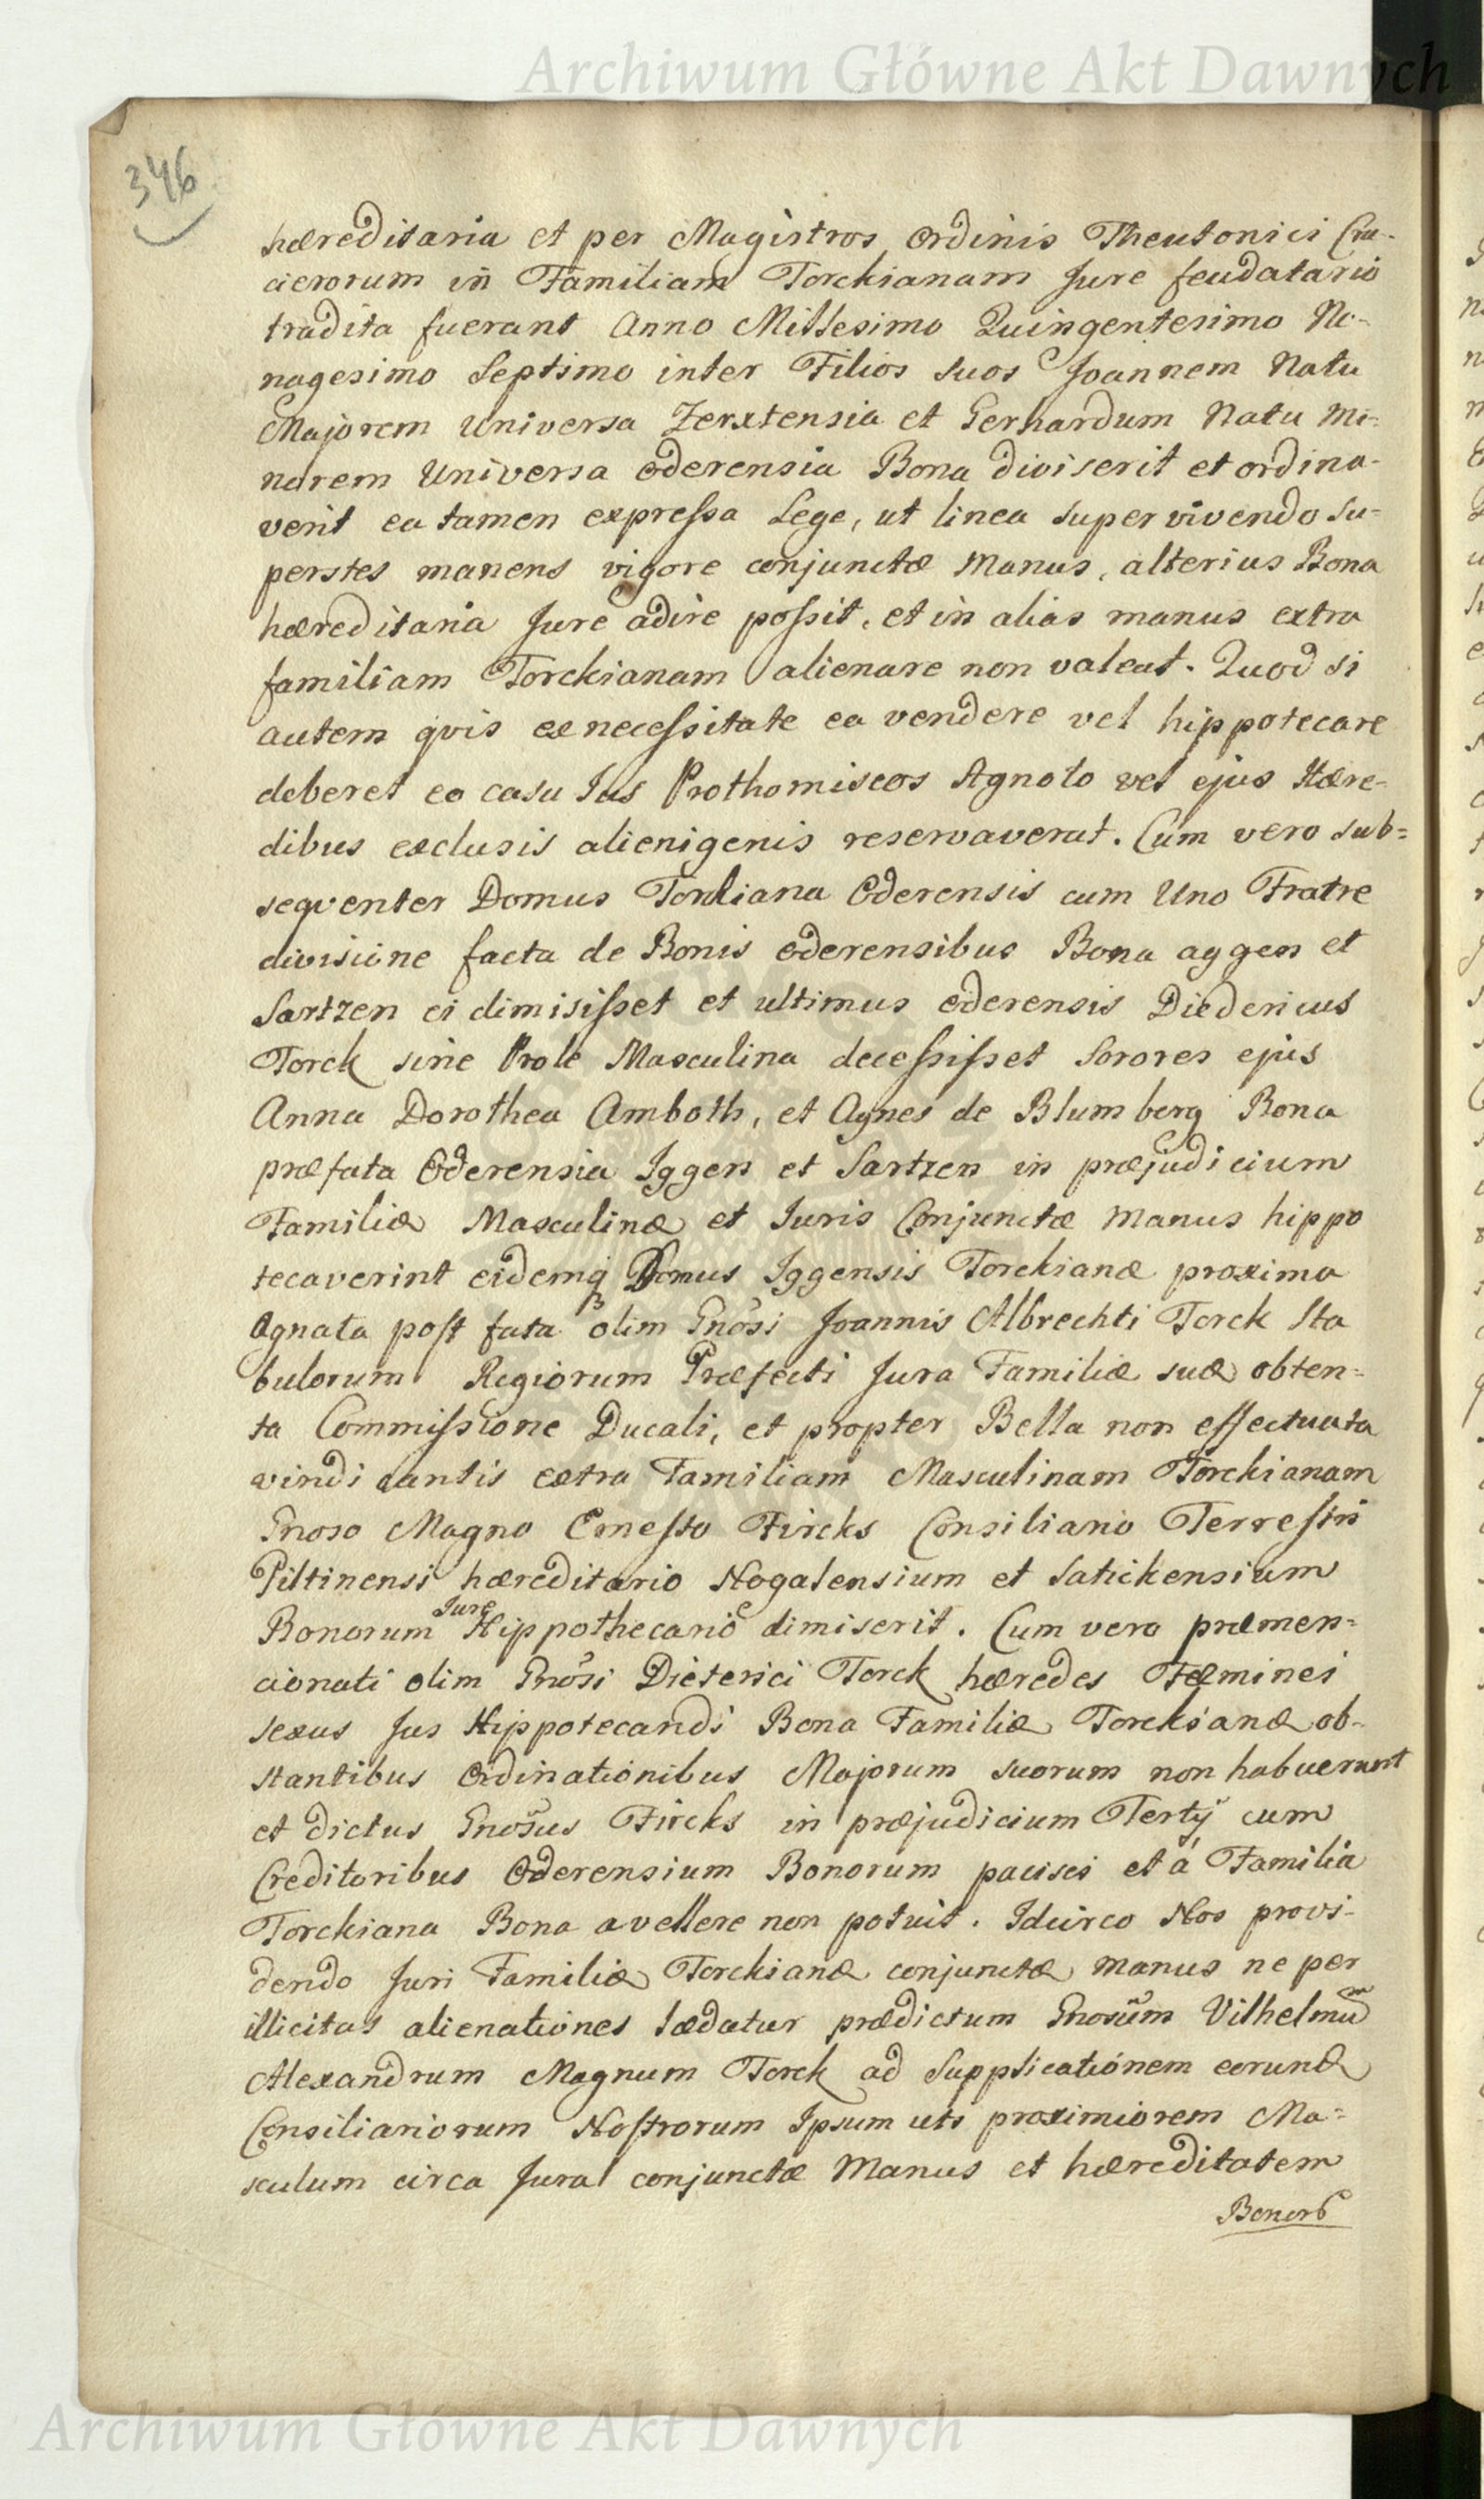 Archiwum Główne Akt Dawnych
346
hæreditaria et per Magistros Ordinis Theutonici Cru-
cierorum in Familiam Torckianam Jure feudatario
tradita fuerant Anno Millesimo Quingentesimo No-
nagesimo Septimo inter Filios suos Joannem Natu
Majorem Universa Zerxtensia et Gerhardum Natu Mi-
norem Universa Oderensia Bona diviserit et ordina-
verit ea tamen expressa Lege, ut linea supervivendo su-
perstes manens vigore conjunctæ Manus, alterius Bona
hæreditaria Jure adire possit, et in alias manus extra
familiam Torckianam alienare non valeat. Quod si
autem qvis ex necessitate ea vendere vel hippotecare
deberet eo casu Jus Prothomiseos Agnato vel ejus Hære-
dibus exclusis alienigenis reservaverat. Cum vero sub=
seqventer Domus Torkiana Oderensis cum Uno Fratre
divisione facta de Bonis Oderensibus Bona aggen et
Sartzen ei dimisisset et ultimus oderensis Diedericus
Torck sine Prole Masculina decessisset Sorores ejus
Anna Dorothea Amboth, et Agnes de Blumberg Bona
præfata Oderensia Iggen et Sartzen in præjudicium
Familiæ Masculinæ et Juris Conjunctæ Manus hippo
tecaverint eidemq Domus Iggensis Torckianæ proxima
Agnata post fata olim Gnosi Joannis Albrechti Torck Sta
bulorum Regiorum Præfecti Jura Familiæ suæ obten=
ta Commissione Ducali, et propter Bella non effectuata
vindicantis extra Familiam Masculinam Torckianam
Gnoso Magno Ernesto Fircks Consiliario Terrestri
Piltinensi hæreditario Nogalensium et Satickensium
Bonorum Jure Hippothecario dimiserit. Cum vero præmen=
cionati olim Gnosi Dieterici Torck hæredes Fæminei
sexus Jus Hippotecandi Bona Familiæ Torckianæ ob-
stantibus Ordinationibus Majorum suorum non habuerunt
et dictus Gnosus Fircks in præjudicium Tertÿ cum
Creditoribus Oderensium Bonorum pacisci et á Familia
Torckiana Bona avellere non potuit. Idcirco Nos provi-
dendo Juri Familiæ Torckianæ conjunctæ manus ne per
illicitas alienationes lædatur prædictum Gnosum Vilhelmum
Alexandrum Magnum Torck ad Supplicationem eorund
Consiliariorum Nostrorum Ipsum uti proximiorem Ma=
sculum circa Jura conjunctæ Manus et hæreditatem
Bonor
Archiwum Główne Akt Dawnych